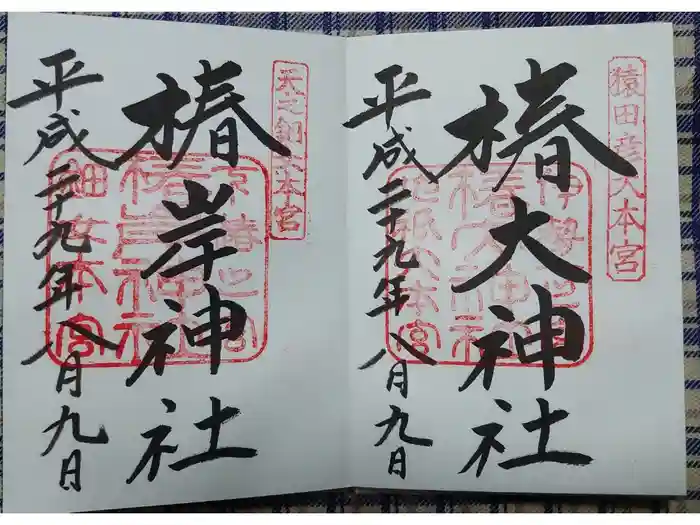 猿田彦大本宮
椿大神社
平成二十九年八月九日
天之鈿女本宮
椿岸神社
平成二十九年八月九日